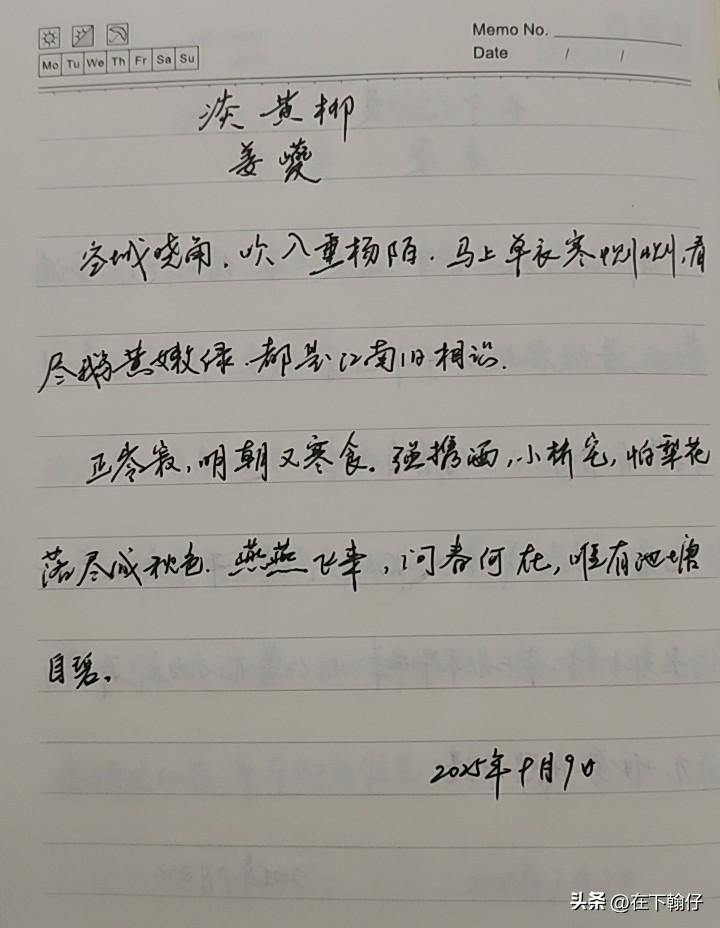 Memo No.
Mo Tu We Th Fr Sa Su
Date / /
淡黄柳
姜夔
空城晓角,吹入垂杨陌.马上单衣寒恻恻,看
尽鹅黄嫩绿.都是江南旧相识.
正岑寂,明朝又寒食。强携酒,小桥宅,怕梨花
落尽成秋色.燕燕飞来,问春何在,唯有池塘
自碧。
2025年9月9日
头条 @在下翰仔